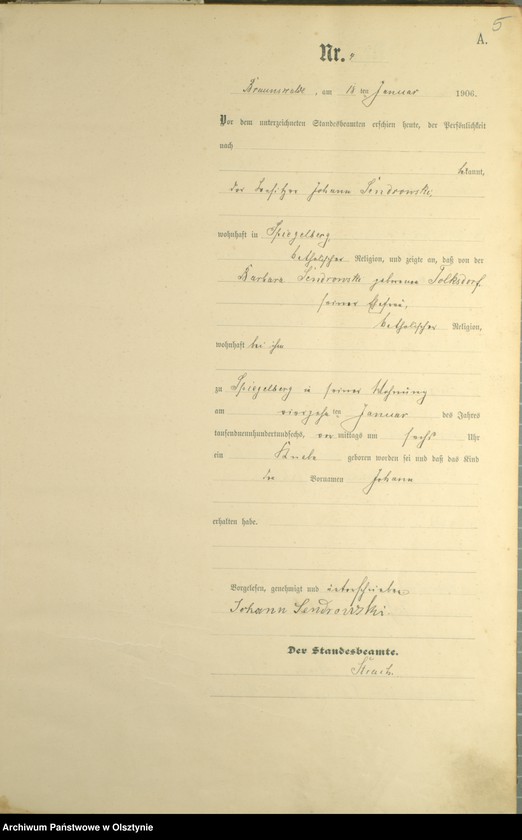 5
A.
Nr. 9
Braunswalde, am 16 ten Januar 1906.
Vor dem unterzeichneten Standesbeamten erschien heute, der Persönlichkeit
nach
bekannt,
der Besitzer Johann Sendrowski,
wohnhaft in Spiegelberg,
katholischer Religion, und zeigte an, daß von der
Barbara Sendrowski geborenen Tolksdorf
seiner Ehefrau,
katholischer Religion,
wohnhaft bei ihm
zu Spiegelberg in seiner Wohnung
am vierzehn ten Januar des Jahres
tausendneunhundertundsechs, vor mittags um sechs Uhr
ein Knabe geboren worden sei und daß das Kind
den Vornamen Johann
erhalten habe.
Vorgelesen, genehmigt und unterschrieben
Johann Sendrowski.
Der Standesbeamte.
Archiwum Państwowe w Olsztynie